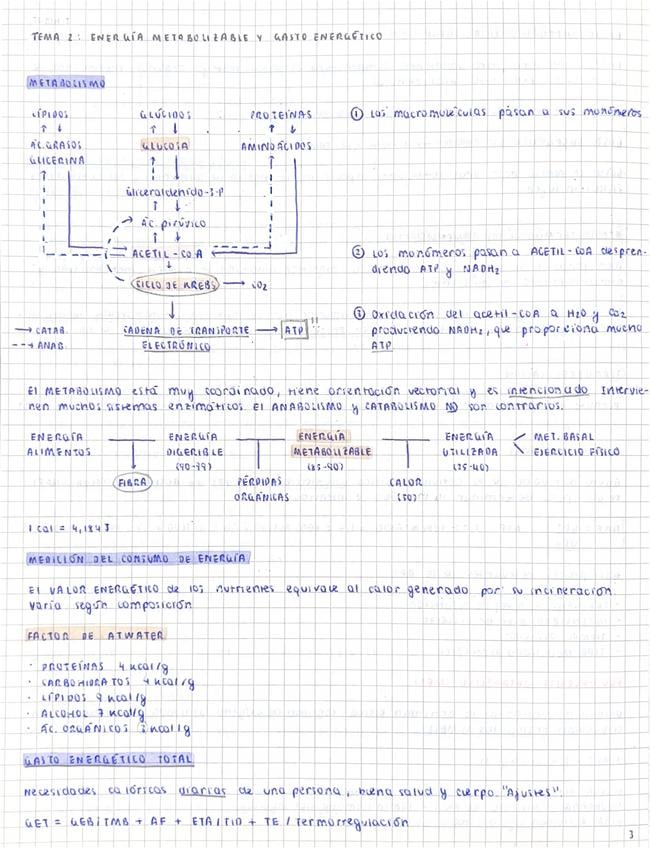 TEMA 2: ENERGÍA METABOLIZABLE Y GASTO ENERGÉTICO
METABOLISMO
LÍPIDOS GLÚCIDOS PROTEÍNAS ① Las macromoléculas pasan a sus monómeros
ÁC. GRASOS GLUCOSA AMINOÁCIDOS
GLICERINA
Gliceraldehido-3-P
ÁC. pirúvico
ACETIL-COA ② Los monómeros pasan a ACETIL-COA despren-
diendo ATP y NADH₂
CICLO DE KREBS → CO₂
③ Oxidación del acetil-COA a H₂O y CO₂
→ CATAB. CADENA DE TRANSPORTE → ATP!! produciendo NADH₂, que proporciona mucho
--→ ANAB. ELECTRÓNICO ATP
El METABOLISMO está muy coordinado, tiene orientación vectorial y es intencionado Intervie-
nen muchos sistemas enzimáticos. El ANABOLISMO y CATABOLISMO NO son contrarios.
ENERGÍA ENERGÍA ENERGÍA ENERGÍA MET. BASAL
ALIMENTOS DIGERIBLE METABOLIZABLE UTILIZADA EJERCICIO FÍSICO
(85-90) (25-40)
FIBRA PÉRDIDAS CALOR
ORGÁNICAS (50)
1 cal = 4,184J
MEDICIÓN DEL CONSUMO DE ENERGÍA
El VALOR ENERGÉTICO de los nutrientes equivale al calor generado por su incineración
varía según composición
FACTOR DE ATWATER
· PROTEÍNAS 4 kcal/g
· CARBOHIDRATOS 4 kcal/g
· LÍPIDOS 9 kcal/g
· ALCOHOL 7 kcal/g
· ÁC. ORGÁNICOS kcal/g
GASTO ENERGÉTICO TOTAL
Necesidades calóricas diarias de una persona, buena salud y cuerpo. "Ajustes".
GET = GEB/TMB + AF + ETA/TID + TE / Termorregulación
3